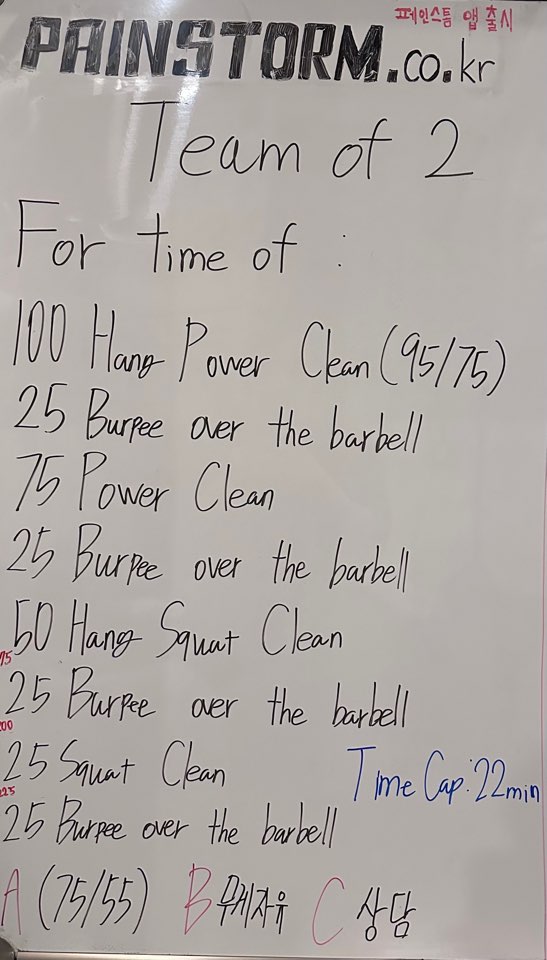 페인스톰 앱 출시
PAINSTORM.co.kr
Team of 2
For time of :
100 Hang Power Clean (95/75)
25 Burpee over the barbell
75 Power Clean
25 Burpee over the barbell
50 Hang Squat Clean
25 Burpee over the barbell
25 Squat Clean
Time Cap: 22min
25 Burpee over the barbell
A (75/55) B 무게자유 C 상담